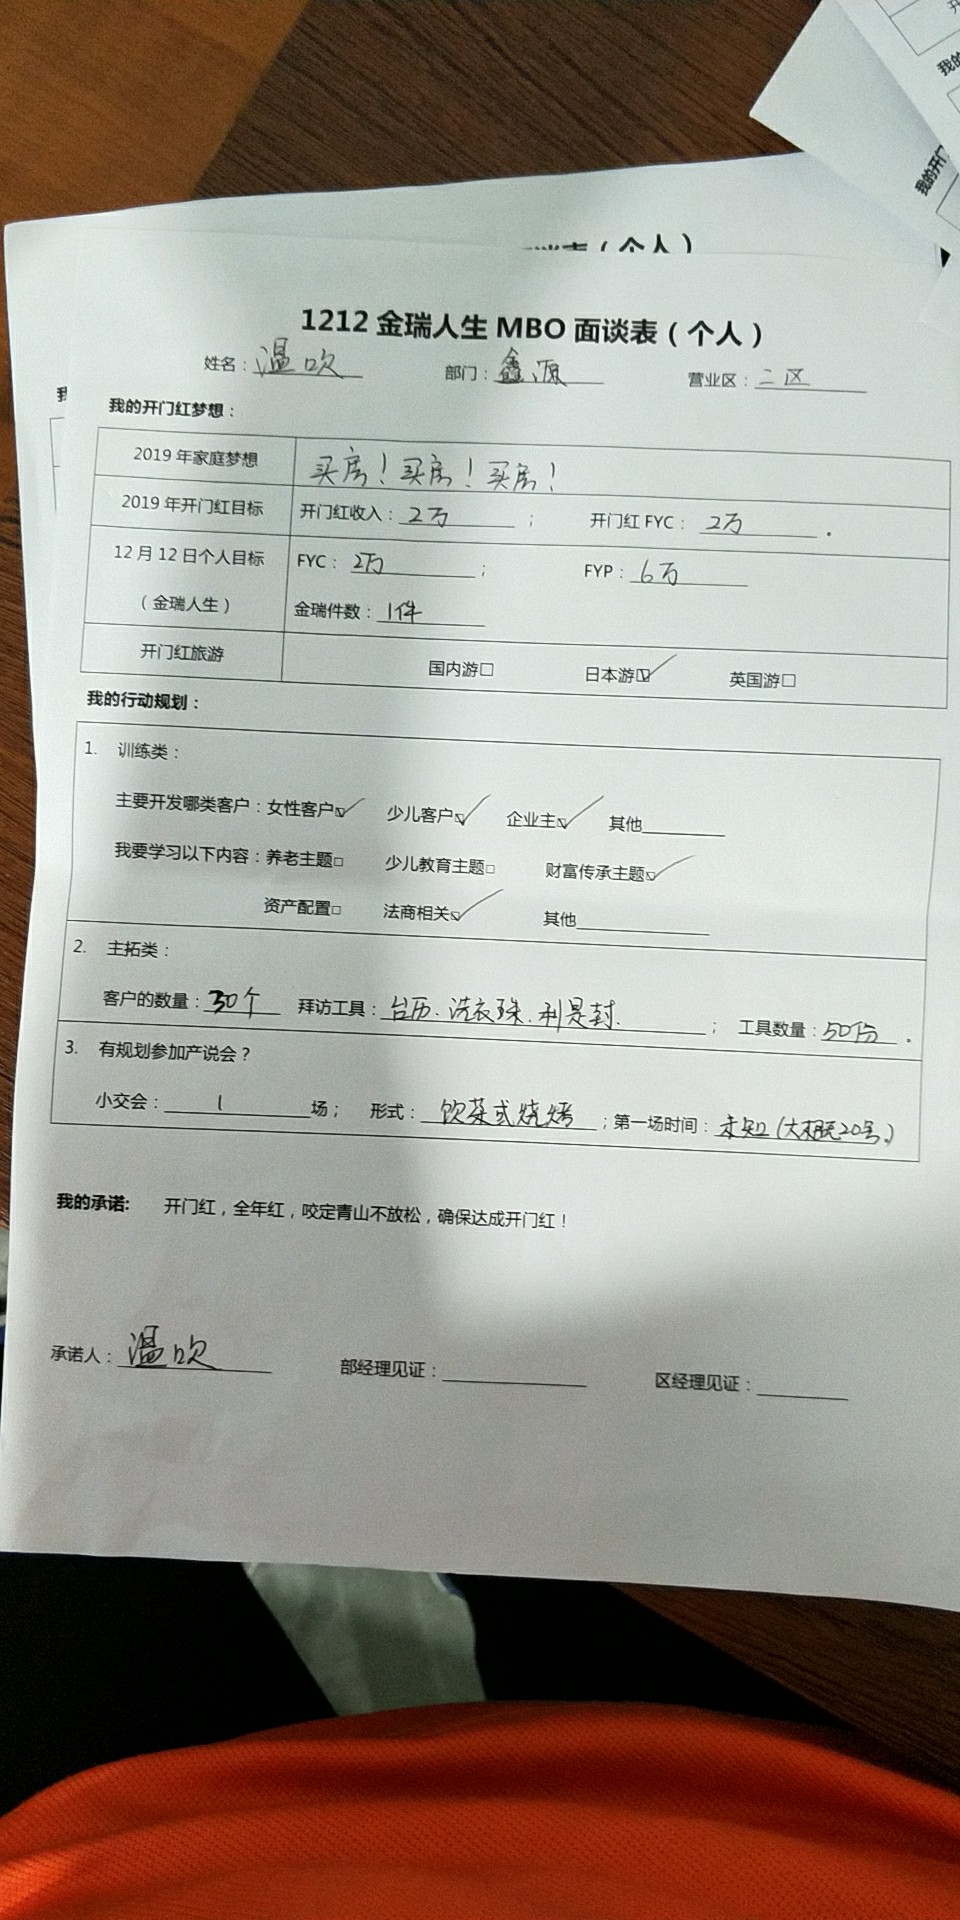 表（个人）
1212 金瑞人生 MBO 面谈表（个人）
姓名：温吹 部门：鑫源 营业区：二区
我的开门红梦想：
2019 年家庭梦想 买房！买房！买房！
2019 年开门红目标 开门红收入：2万； 开门红 FYC：2万.
12 月 12 日个人目标 FYC：2万； FYP：6万
（金瑞人生） 金瑞件数：1件
开门红旅游 国内游□ 日本游☑ 英国游□
我的行动规划：
1. 训练类：
主要开发哪类客户：女性客户☑ 少儿客户☑ 企业主☑ 其他
我要学习以下内容：养老主题□ 少儿教育主题□ 财富传承主题☑
资产配置□ 法商相关☑ 其他
2. 主拓类：
客户的数量：30个 拜访工具：台历.洗衣珠.利是封.； 工具数量：50份.
3. 有规划参加产说会？
小交会：1场； 形式：饮茶或烧烤；第一场时间：未知(大概20号)
我的承诺: 开门红，全年红，咬定青山不放松，确保达成开门红！
承诺人：温吹 部经理见证： 区经理见证：
我的
我的开门